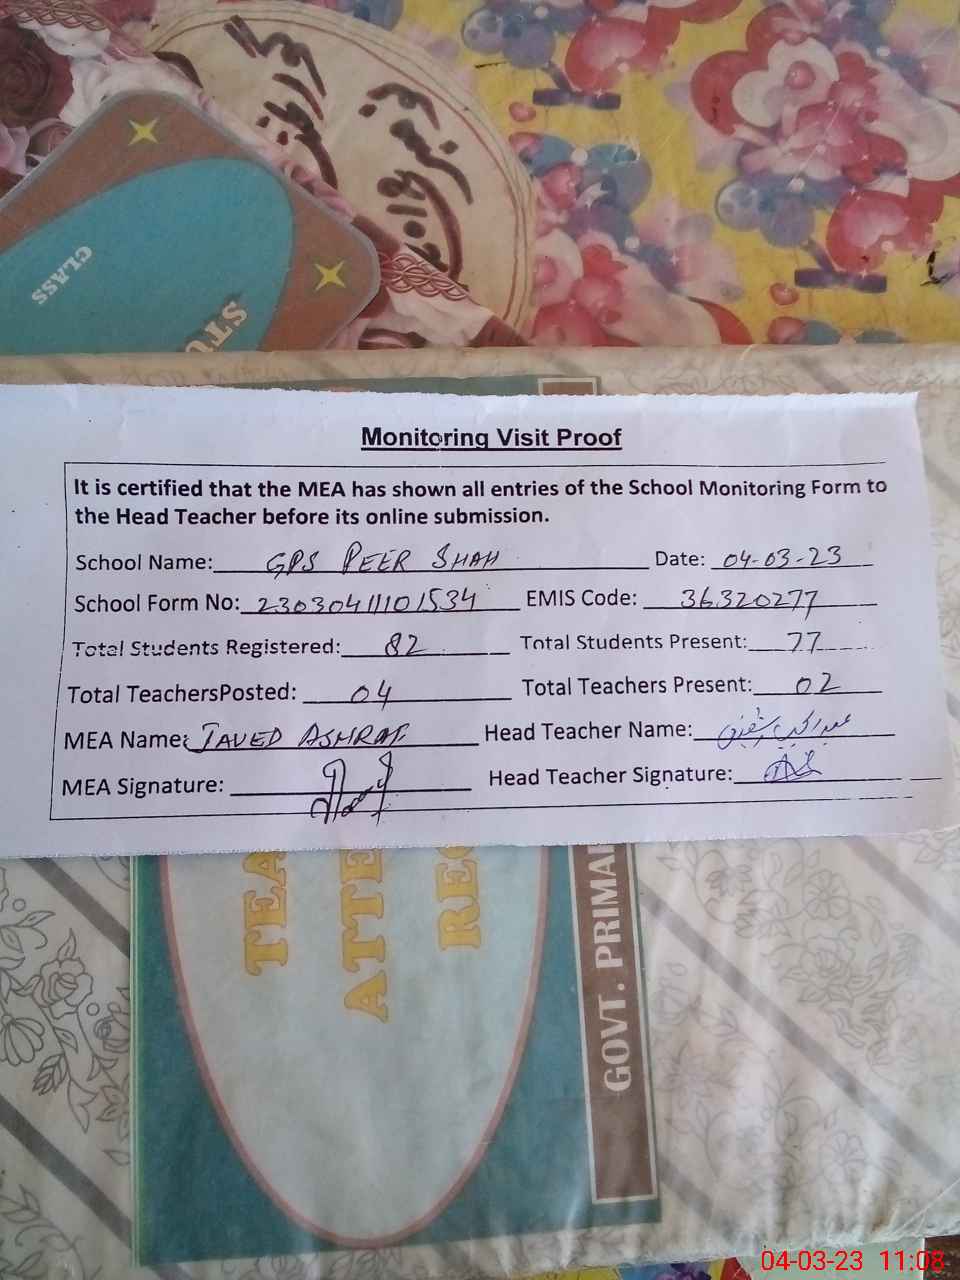 CLASS
STU
Monitoring Visit Proof
It is certified that the MEA has shown all entries of the School Monitoring Form to
the Head Teacher before its online submission.
School Name: GPS PEER SHAH Date: 04-03-23
School Form No: 23030411101534 EMIS Code: 36320277
Total Students Registered: 82 Total Students Present: 77
Total TeachersPosted: 04 Total Teachers Present: 02
MEA Name: JAVED ASHRAF Head Teacher Name:
MEA Signature: Head Teacher Signature:
TEA
ATTE
REG
GOVT. PRIMA
04-03-23 11:08